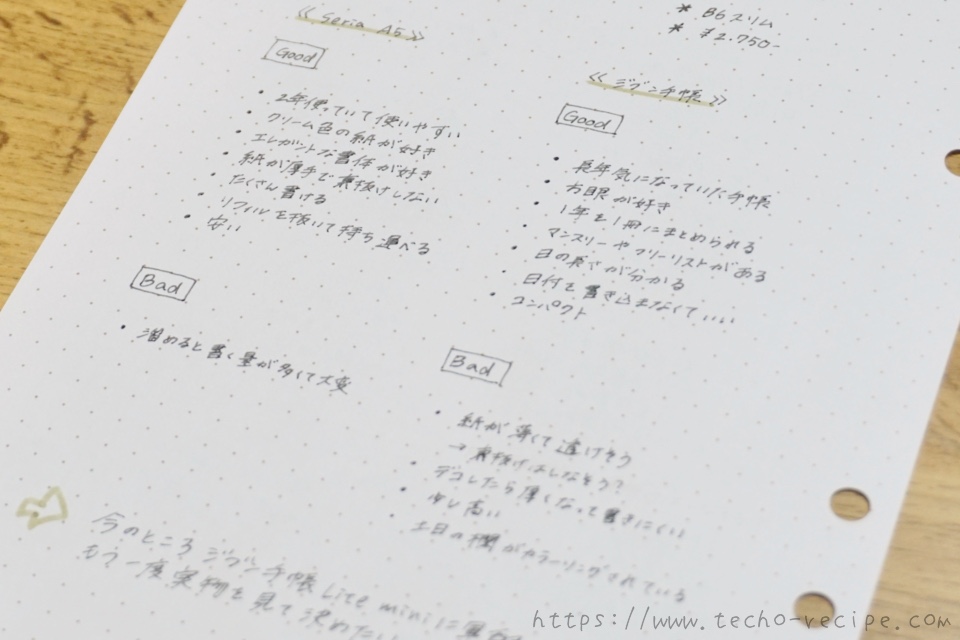 《 Seria A5 》
Good
• 2年使っていて使いやすい
• クリーム色の紙が好き
• エレガントな書体が好き
• 紙が厚手で裏抜けしない
• たくさん書ける
• リフィルを抜いて持ち運べる
• 安い
Bad
• 溜めると書く量が多くて大変
* B6スリム
* ¥2.750-
《 ジブン手帳 》
Good
• 長年気になっていた手帳
• 方眼が好き
• 1年を1冊にまとめられる
• マンスリーやフリーリストがある
• 日の長さが分かる
• 日付を書き込まなくていい
• コンパクト
Bad
• 紙が薄くて透けそう
→ 裏抜けはしなそう?
• デコしたら厚くなって書きにくい
• 少し高い
• 土日の欄がカラーリングされている
今のところジブン手帳 Lite miniに
もう一度実物を見て決めたい
https://www.techo-recipe.com